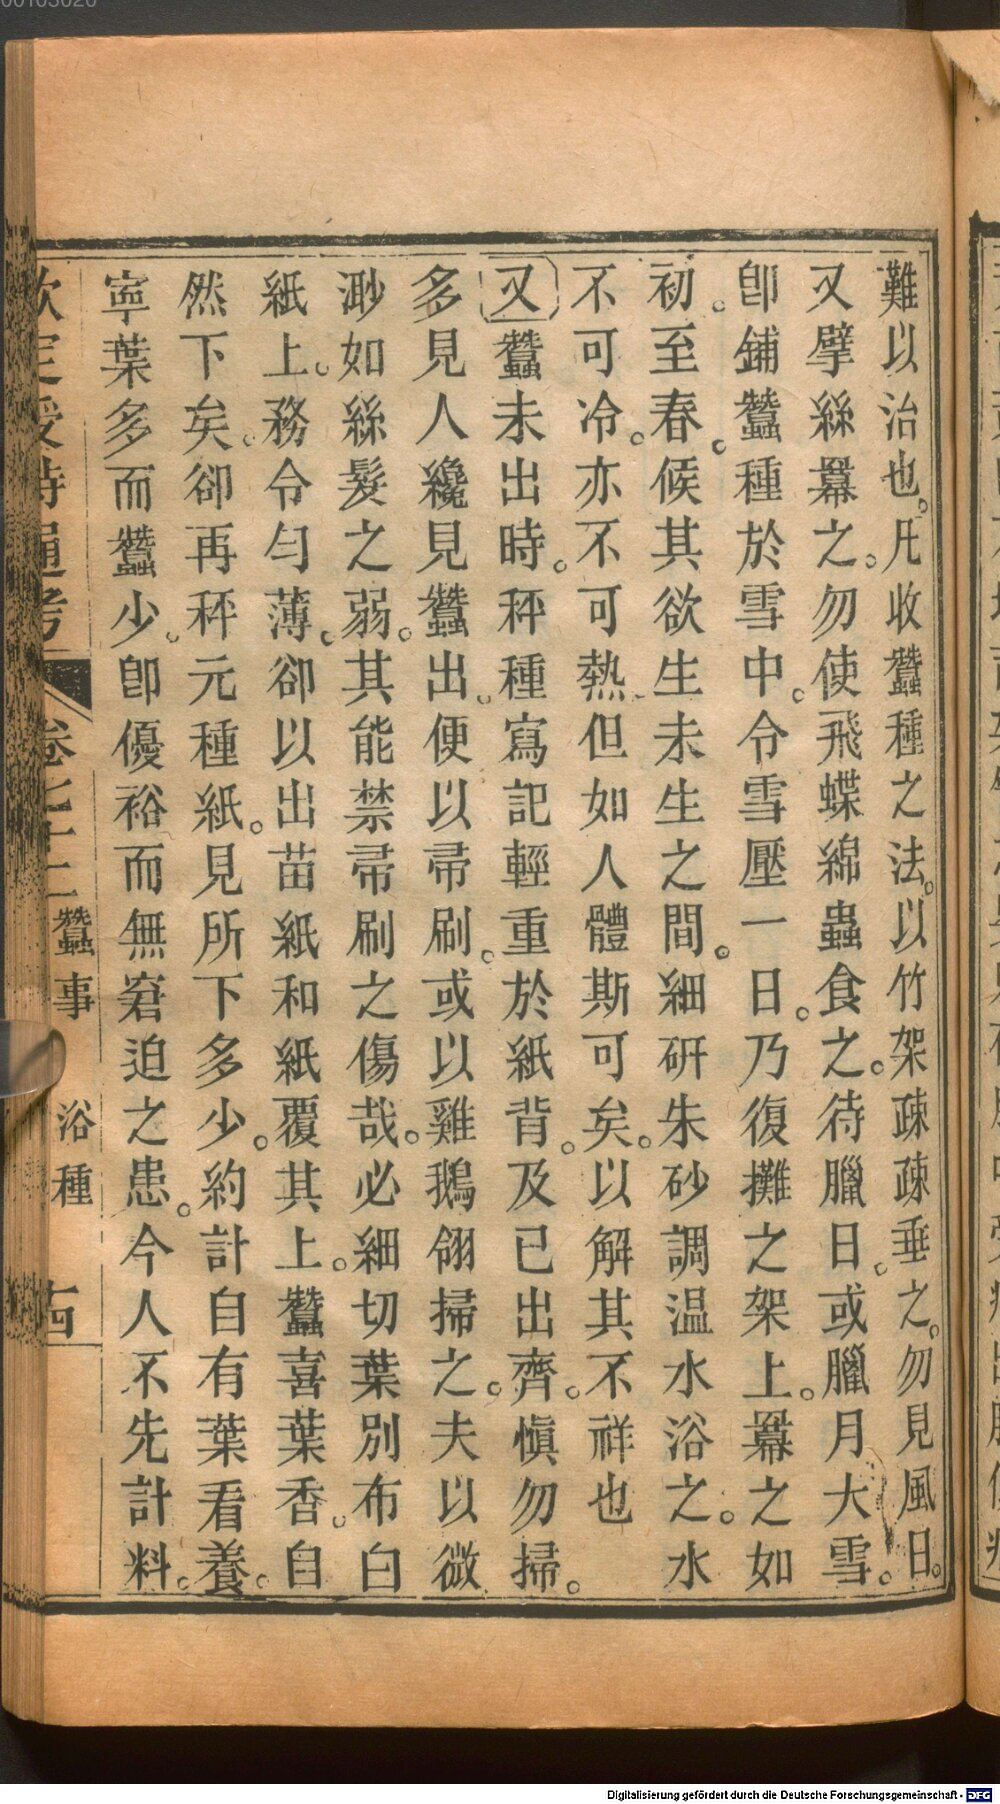 難以治也。凡收蠶種之法。以竹架疎疎垂之。勿見風日。
又擘絲羃之。勿使飛蝶綿蟲食之。待臘日。或臘月大雪。
卽鋪蠶種於雪中。令雪壓一日。乃復攤之架上。羃之如
初。至春。候其欲生未生之間。細研朱砂調温水浴之。水
不可冷。亦不可熱。但如人體斯可矣。以解其不祥也
又蠶未出時。秤種寫記輕重於紙背。及已出齊。愼勿掃。
多見人纔見蠶出。便以帚刷。或以雞鵝翎掃之。夫以微
渺如絲髮之弱。其能禁帚刷之傷哉。必細切葉別布白
紙上。務令勻薄。卻以出苗紙和紙覆其上。蠶喜葉香。自
然下矣。卻再秤元種紙。見所下多少。約計自有葉看養。
寧葉多而蠶少。卽優裕而無窘迫之患。今人不先計料。
欽定授時通考 卷七十二 蠶事 浴種 十四
00103020
Digitalisierung gefördert durch die Deutsche Forschungsgemeinschaft - DFG